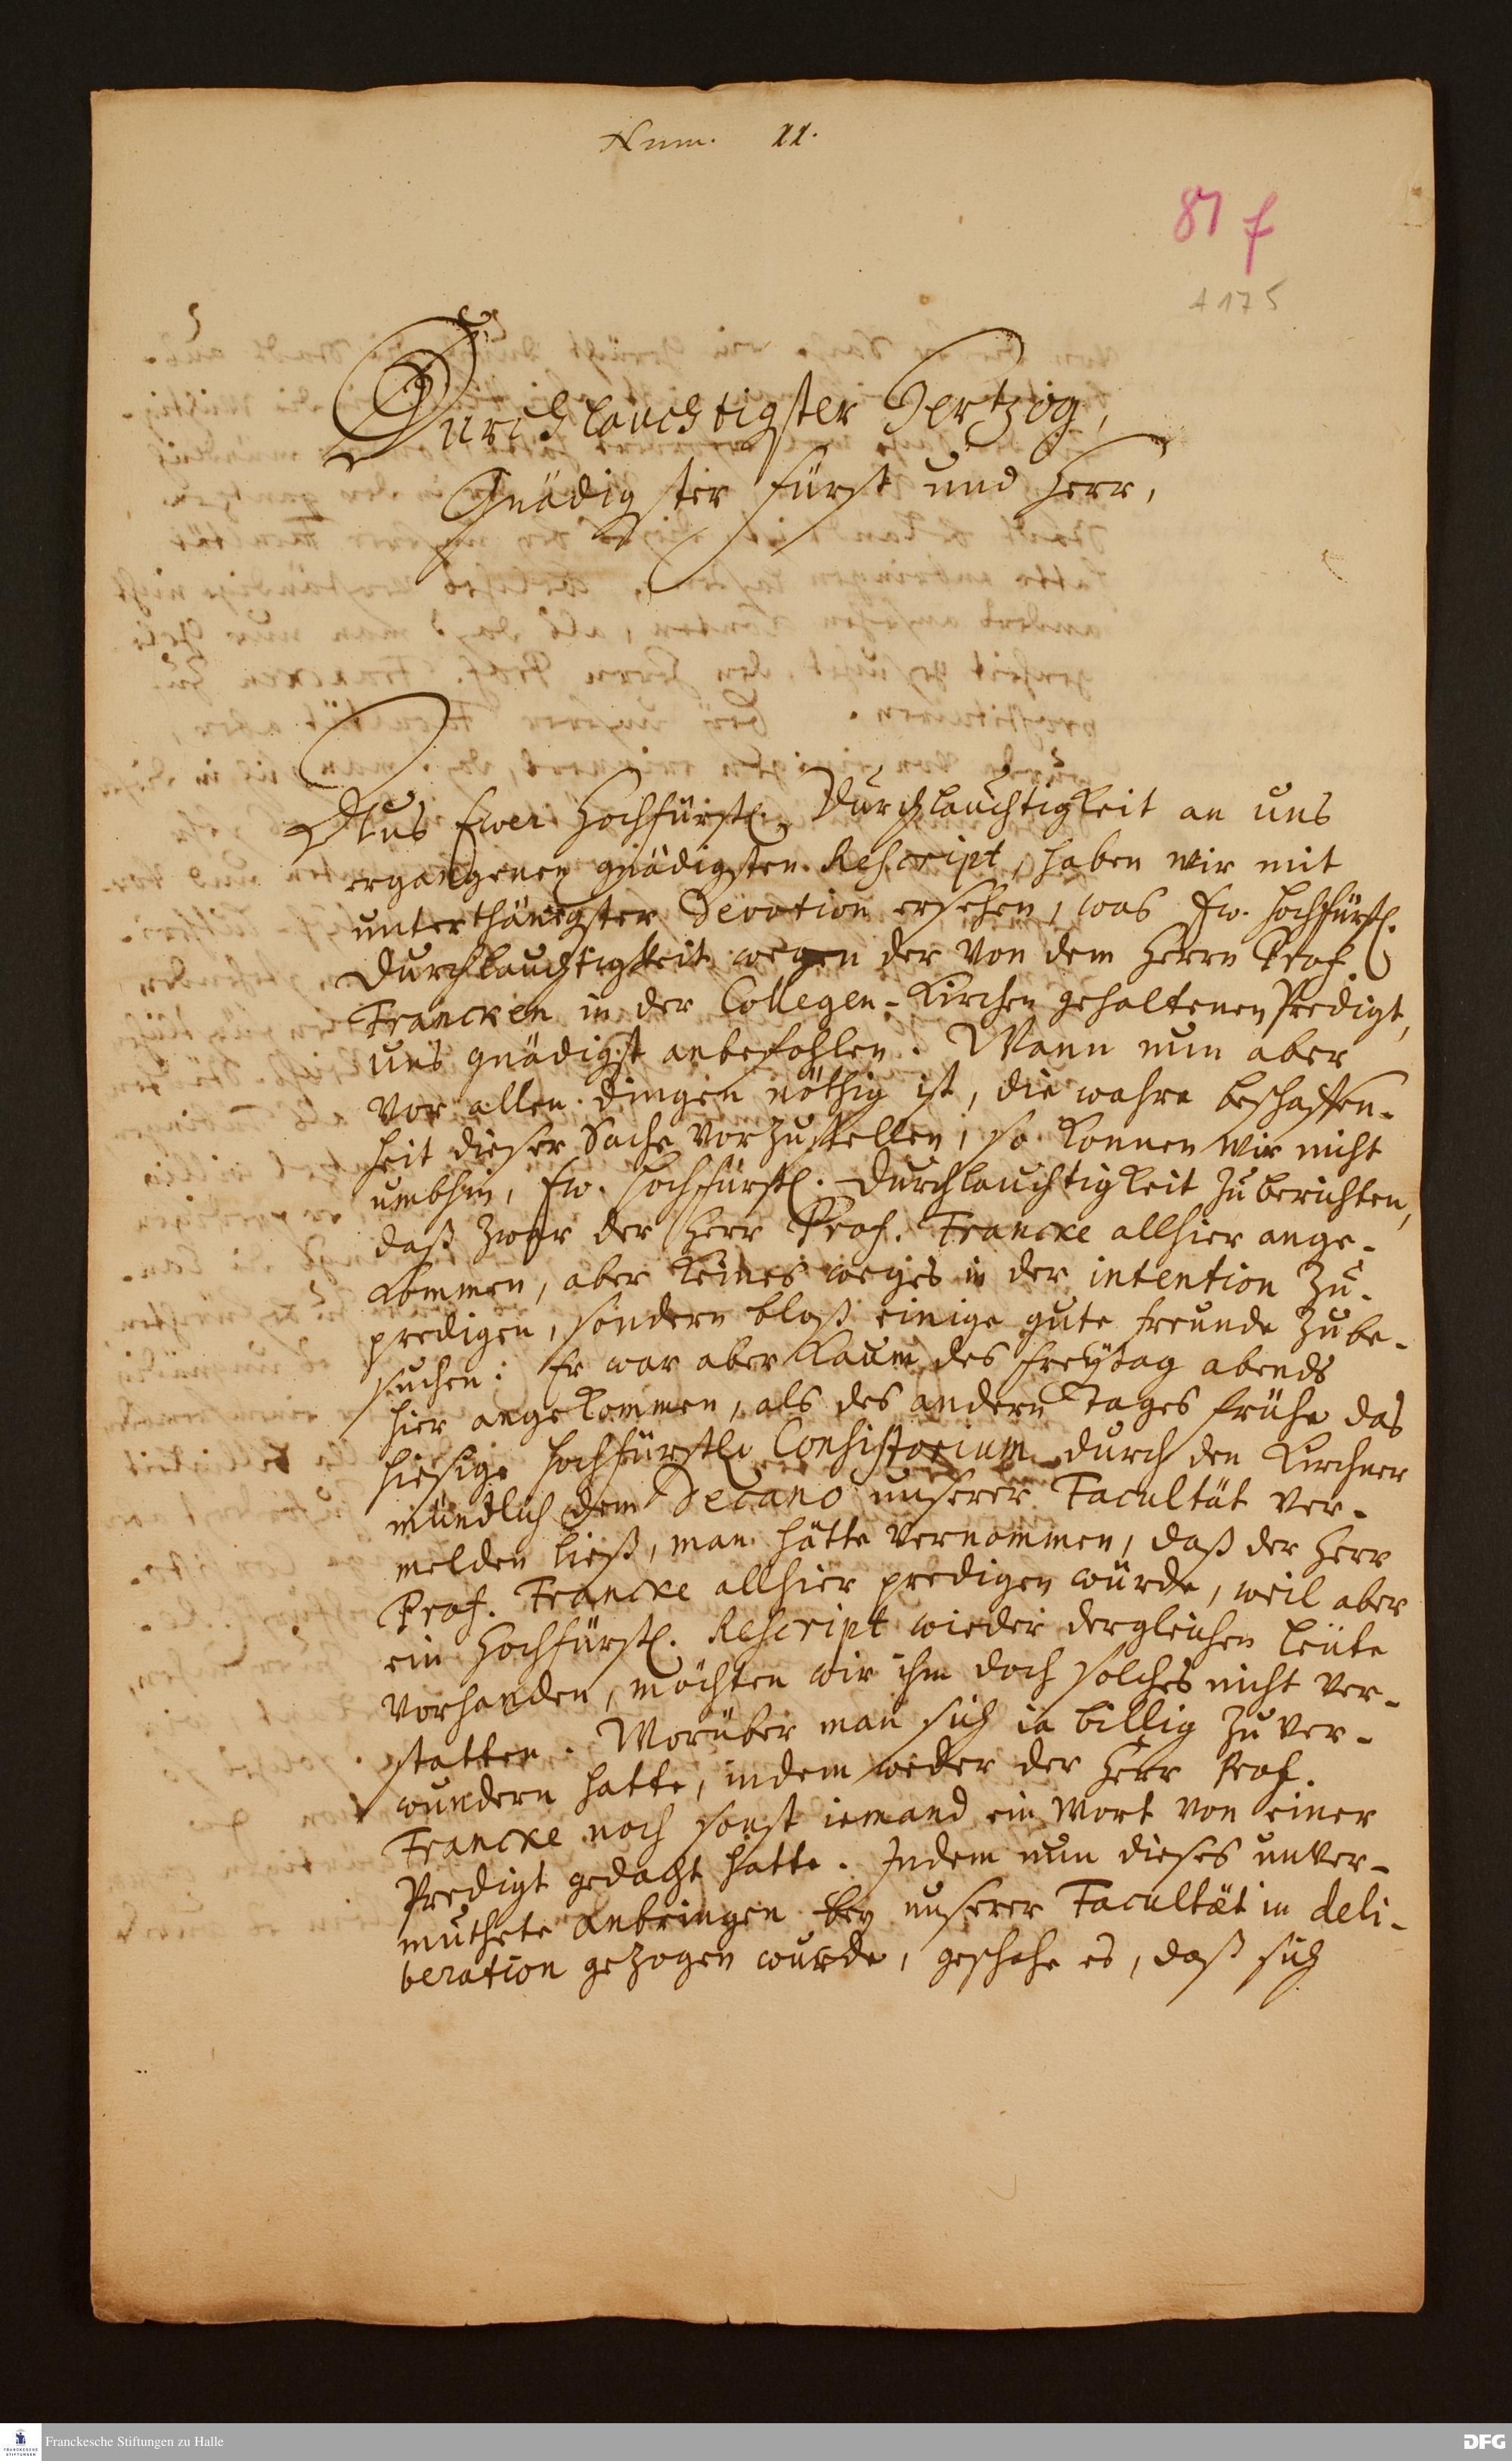 Num. 11.
87 f
A 175
Durchlauchtigster Hertzog,
Gnädigster Fürst und Herr,
Aus Ewer Hochfürstl. Durchlauchtigkeit an uns
ergangenen gnädigsten Rescript, haben wir mit
unterthänigster Devotion ersehen, was Ew. Hochfürstl.
Durchlauchtigkeit wegen der von dem Herrn Prof.
Francken in der Collegen-Kirchen gehaltenen Predigt,
uns gnädigst anbefohlen. Wann nun aber
vor allen dingen nöthig ist, die wahre beschaffen-
heit dieser Sache vorzustellen, so konnen wir nicht
umbhin, Ew. Hochfürstl. Durchlauchtigkeit zu berichten,
daß zwar der Herr Prof. Francke allhier ange-
kommen, aber keines weges in der intention zu
predigen, sondern bloß einige gute freunde zu be-
suchen: Er war aber kaum des Freytag abends
hier angekommen, als des andern Tages frühe das
hiesige Hochfürstl. Consistorium durch den Kirchner
mündlich dem Decano unserer Facultät ver-
melden ließ, man hätte vernommen, daß der Herr
Prof. Francke allhier predigen würde, weil aber
ein Hochfürstl. Rescript wieder dergleichen leüte
vorhanden, möchten wir ihm doch solches nicht ver-
statten. Worüber man sich ia billig zu ver-
wundern hatte, indem weder der Herr Prof.
Francke noch sonst iemand ein Wort von einer
Predigt gedacht hatte. Indem nun dieses unver-
muthete anbringen bey unserer Facultät in deli-
beration gezogen wurde, geschahe es, daß sich
Franckesche Stiftungen zu Halle
FRANCKESCHE STIFTUNGEN
DFG